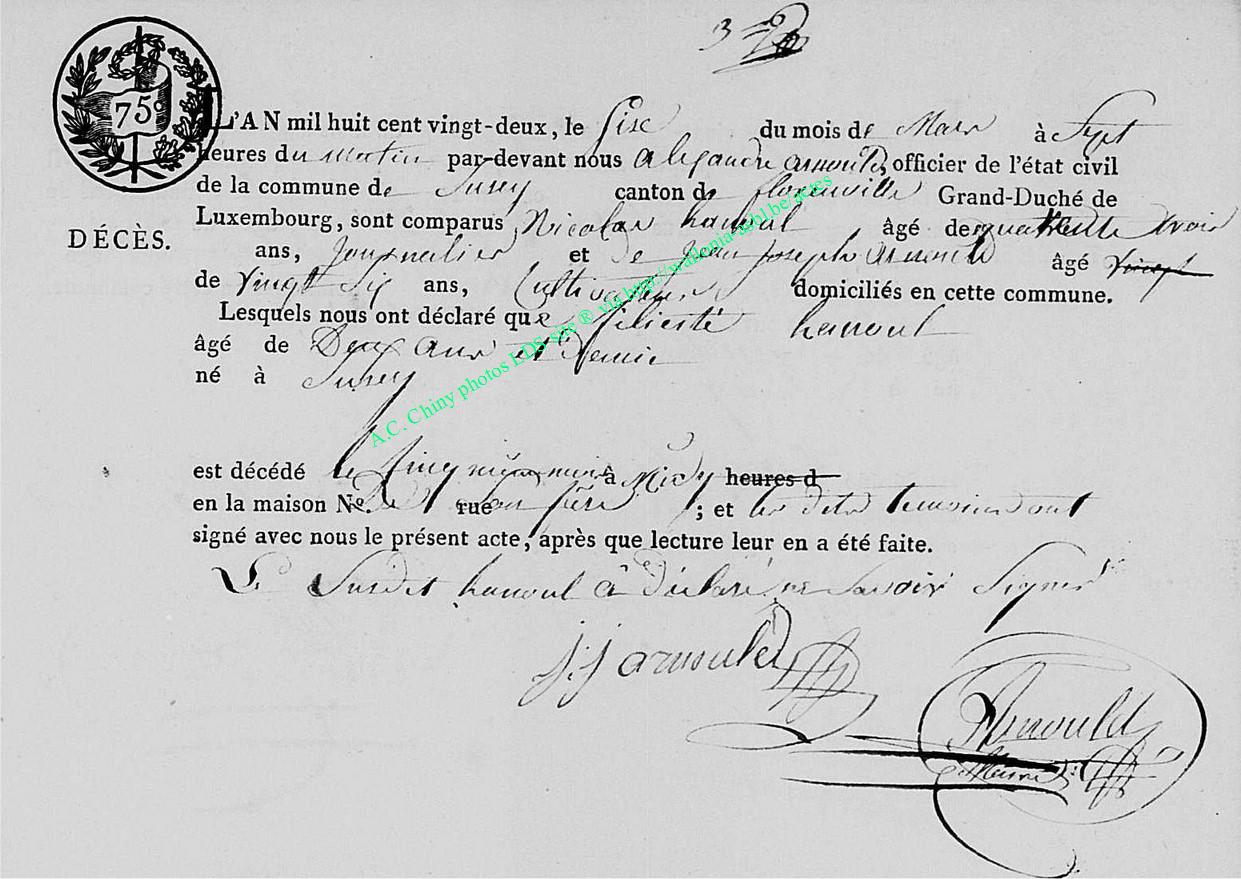 3
75c
L'AN mil huit cent vingt-deux, le Sise du mois de Mars à Sept
heures du matin par-devant nous alexandre arnould, officier de l'état civil
de la commune de Suxey canton de florenville Grand-Duché de
DÉCÈS.
Luxembourg, sont comparus Nicolas hanoul âgé de quarante trois
ans, Journalier et de Jean Joseph arnould âgé vingt
de vingt Six ans, Cultivateur domiciliés en cette commune.
Lesquels nous ont déclaré que féliesté hanoul
âgé de Deux ans et Demie
né à Suxey
est décédé le Cinq à Midy heures d
en la maison No. De rue son père ; et les dits temoins ont
signé avec nous le présent acte, après que lecture leur en a été faite.
Le Susdit hanoul a déclaré ne Savoir Signer
j:j arnould
Arnould
A.C. Chiny photos LDS site ® via http://wallonia-asbl.be/actes